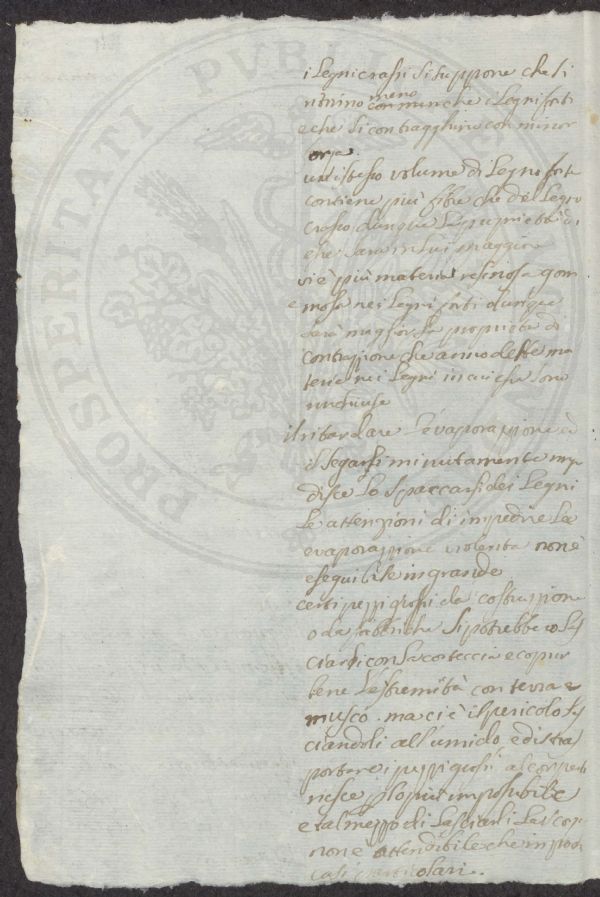 PROSPERITATI PVBLICAE
i Legni crassi si suppone che si
ritirino meno che i Legni forti
e che si contragghino con minor
un istesso volume di Legno forte
contiene più fibre che del Legno
crasso dunque la proprietà di
che sarà in lui maggiore
vi è più materia resinosa gom
mosa nei Legni forti dunque
sarà maggior la proprietà di
contrazione che anno dette ma
terie nei Legni in cui esse sono
il ritardare l'evaporazione ed
il segarsi minutamente impe
disce lo spaccarsi dei Legni
le attenzioni di impedire la
evaporazione violenta non è
eseguibile in grande
certi pezzi grossi da costruzzione
o da fabbriche si potrebbero la
sciarsi con la corteccia e coprir
bene l'estremità con terra e
musco. ma ci è il pericolo la
sciandoli all'umido, e di tras
portare i pezzi grossi al coperto
riesce p lo più impossibile
e tal mezzo di lasciarli la scor
non è attendibile che in pochi
casi particolari.